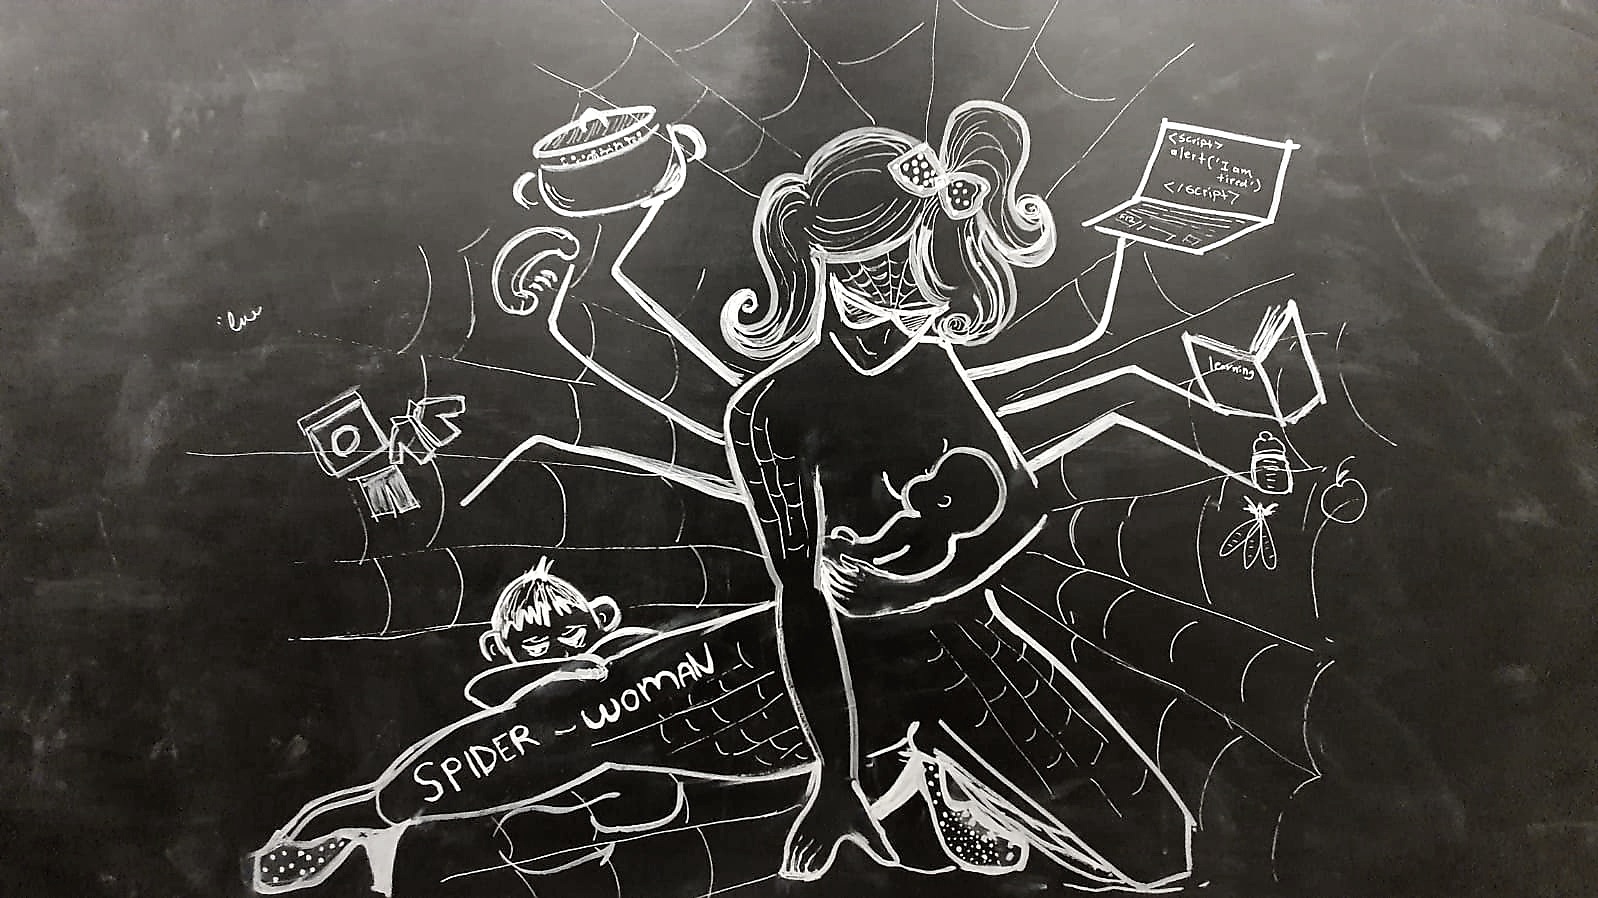 <script>
alert('I am
tired')
</script>
learning
SPIDER - WOMAN